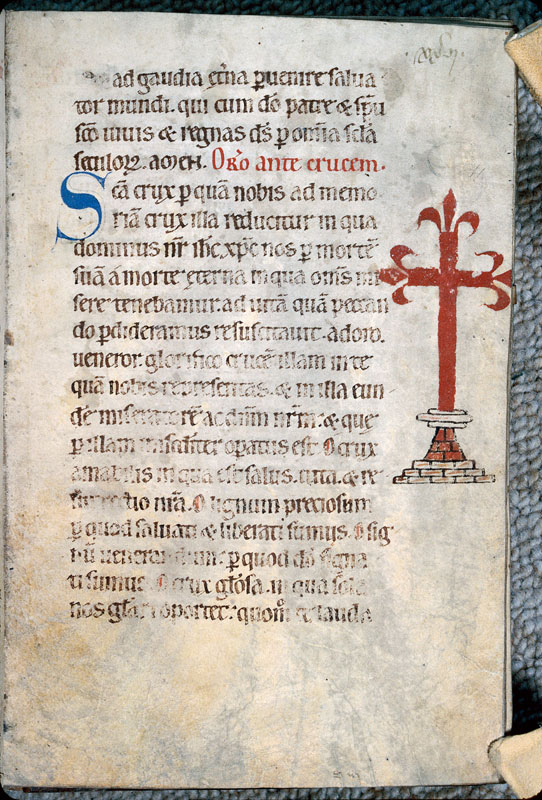 ad gaudia et̄na ꝑuenire salua
tor mundi. qui cum dō patre & sp̄u
sc̄o uiuis & regnas ds̄ ꝑ om̄ia sc̄la
seculoꝝ. amen. Or̄o ante crucem.
Sc̄a crux ꝑ quā nobis ad memo
riā crux illa reducitur in qua
dominus nr̄ ih̄c xp̄c nos ꝑ mortē
suā a morte eterna in qua om̄s mi
sere tenebamur. ad uitā quā peccan
do ꝑdideramus resuscitauit. adoro.
ueneror. glorifico crucē illam in te
quā nobis representas. & in illa eun
dē miseratorē ac dn̄m nr̄m. & que
ꝑ illam operatus est. O crux
amabilis in qua est salus. uita. & re
surrectio nr̄a. O lignum preciosum
ꝑ quod saluati & liberati sumus. O sig
nū uenerandum. ꝑ quod dō signa
ti sumus. O crux glōsa. in qua sola
nos glāri oportet. quom̊ & lauda